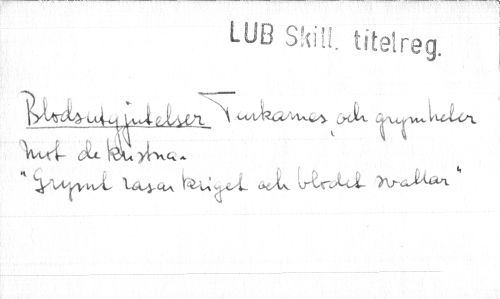 LUB Skill. titelreg.
Blodsutgjutelser Turkarnes och grymheter
mot de kristna.
"Grymt rasar kriget och blodet svallar"